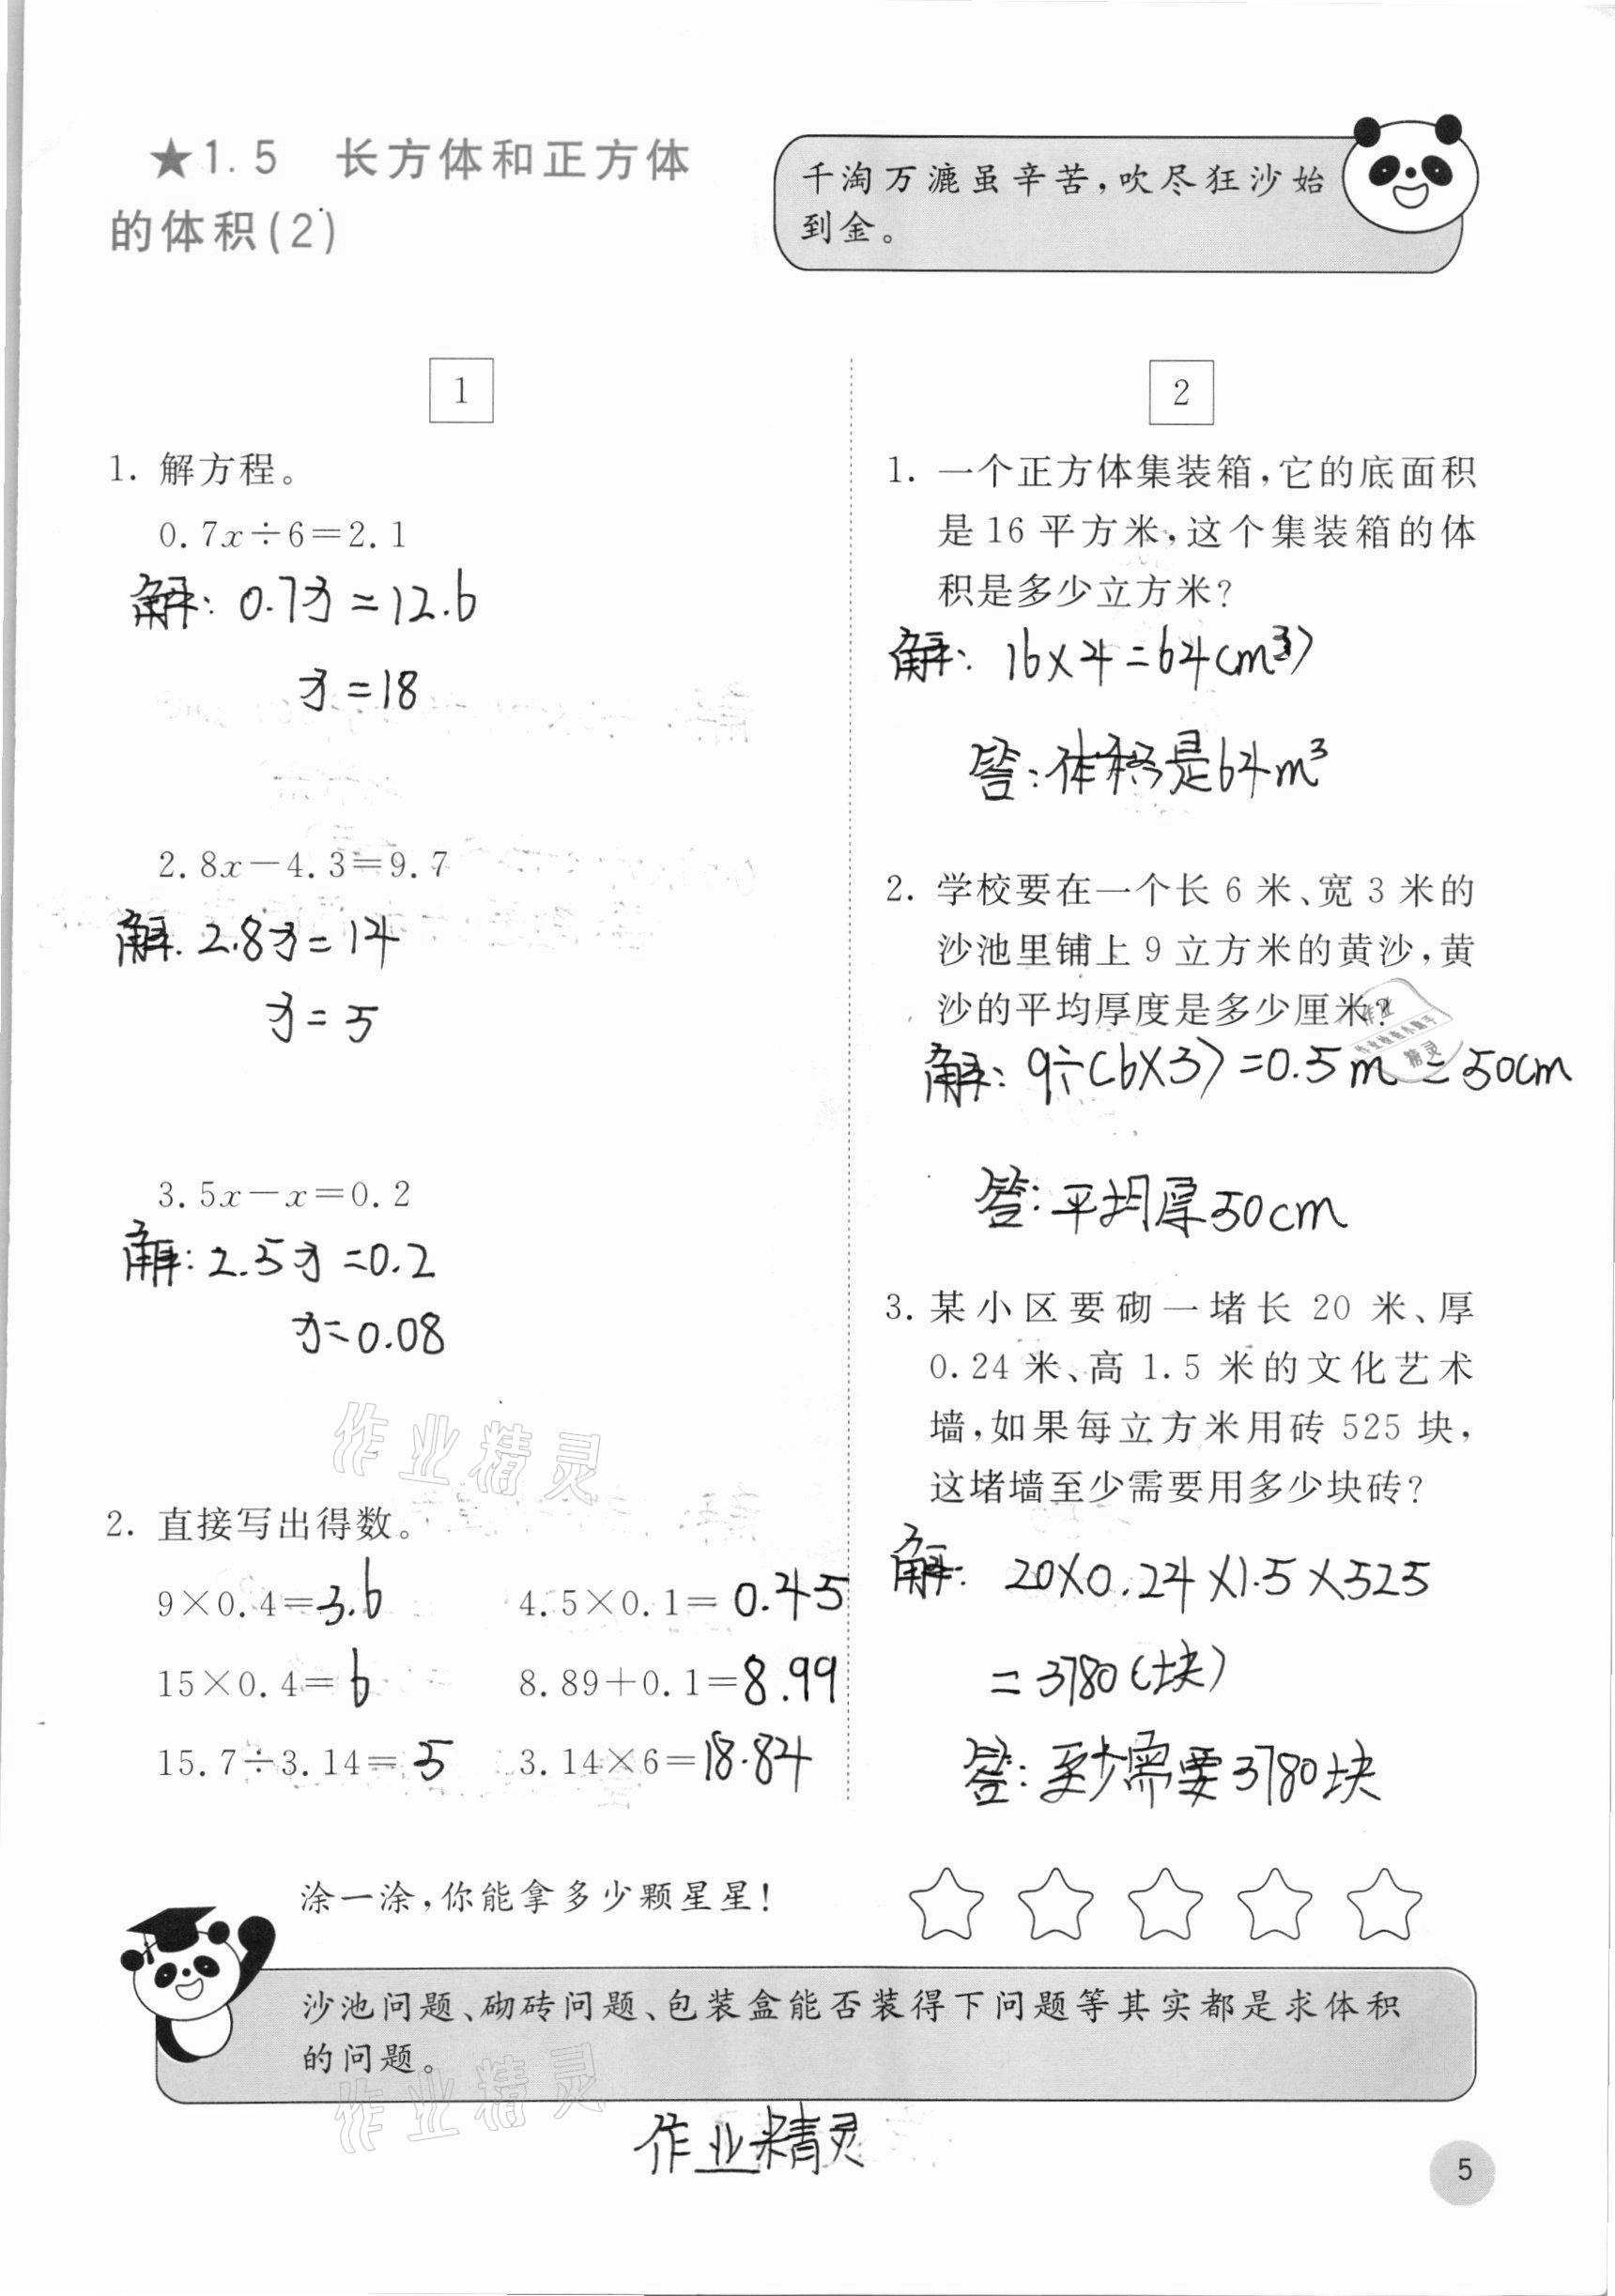 ★1.5 长方体和正方体
的体积(2)
千淘万漉虽辛苦,吹尽狂沙始
到金。
1
1. 解方程。
0.7x÷6=2.1
解: 0.7x=12.6
x=18
2.8x-4.3=9.7
解. 2.8x=14
x=5
3.5x-x=0.2
解: 2.5x=0.2
x=0.08
2. 直接写出得数。
9×0.4=3.6 4.5×0.1=0.45
15×0.4=6 8.89+0.1=8.99
15.7÷3.14=5 3.14×6=18.84
2
1. 一个正方体集装箱,它的底面积
是16平方米,这个集装箱的体
积是多少立方米?
解: 16×4=64(m³)
答:体积是64m³
2. 学校要在一个长6米、宽3米的
沙池里铺上9立方米的黄沙,黄
沙的平均厚度是多少厘米?
解: 9÷(6×3)=0.5m=50cm
答:平均厚50cm
3. 某小区要砌一堵长20米、厚
0.24米、高1.5米的文化艺术
墙,如果每立方米用砖525块,
这堵墙至少需要用多少块砖?
解: 20×0.24×1.5×525
=3780(块)
答:至少需要3780块
作业
作业检查小助手
精灵
作业精灵
涂一涂,你能拿多少颗星星!
沙池问题、砌砖问题、包装盒能否装得下问题等其实都是求体积
的问题。
作业精灵
作业精灵
5